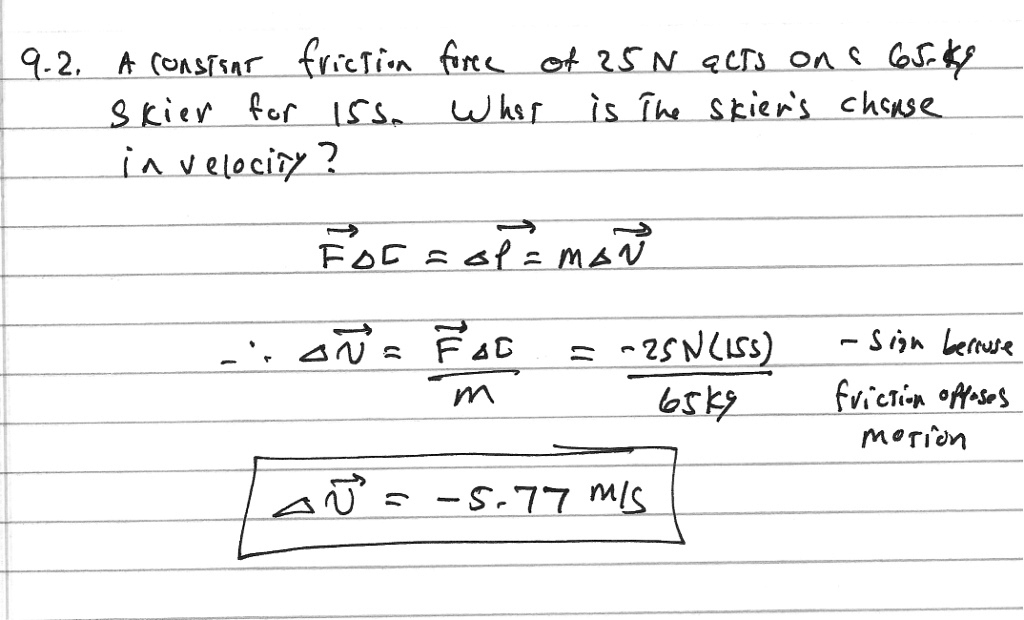 9-2. A constant friction force of 25 N acts on a 65-kg
skier for 15s. What is the skier's change
in velocity?
F⃗Δt = Δp⃗ = mΔv⃗
∴ Δv⃗ = F⃗Δt / m = -25N(15s) / 65kg
- sign because
friction opposes
motion
Δv⃗ = -5.77 m/s